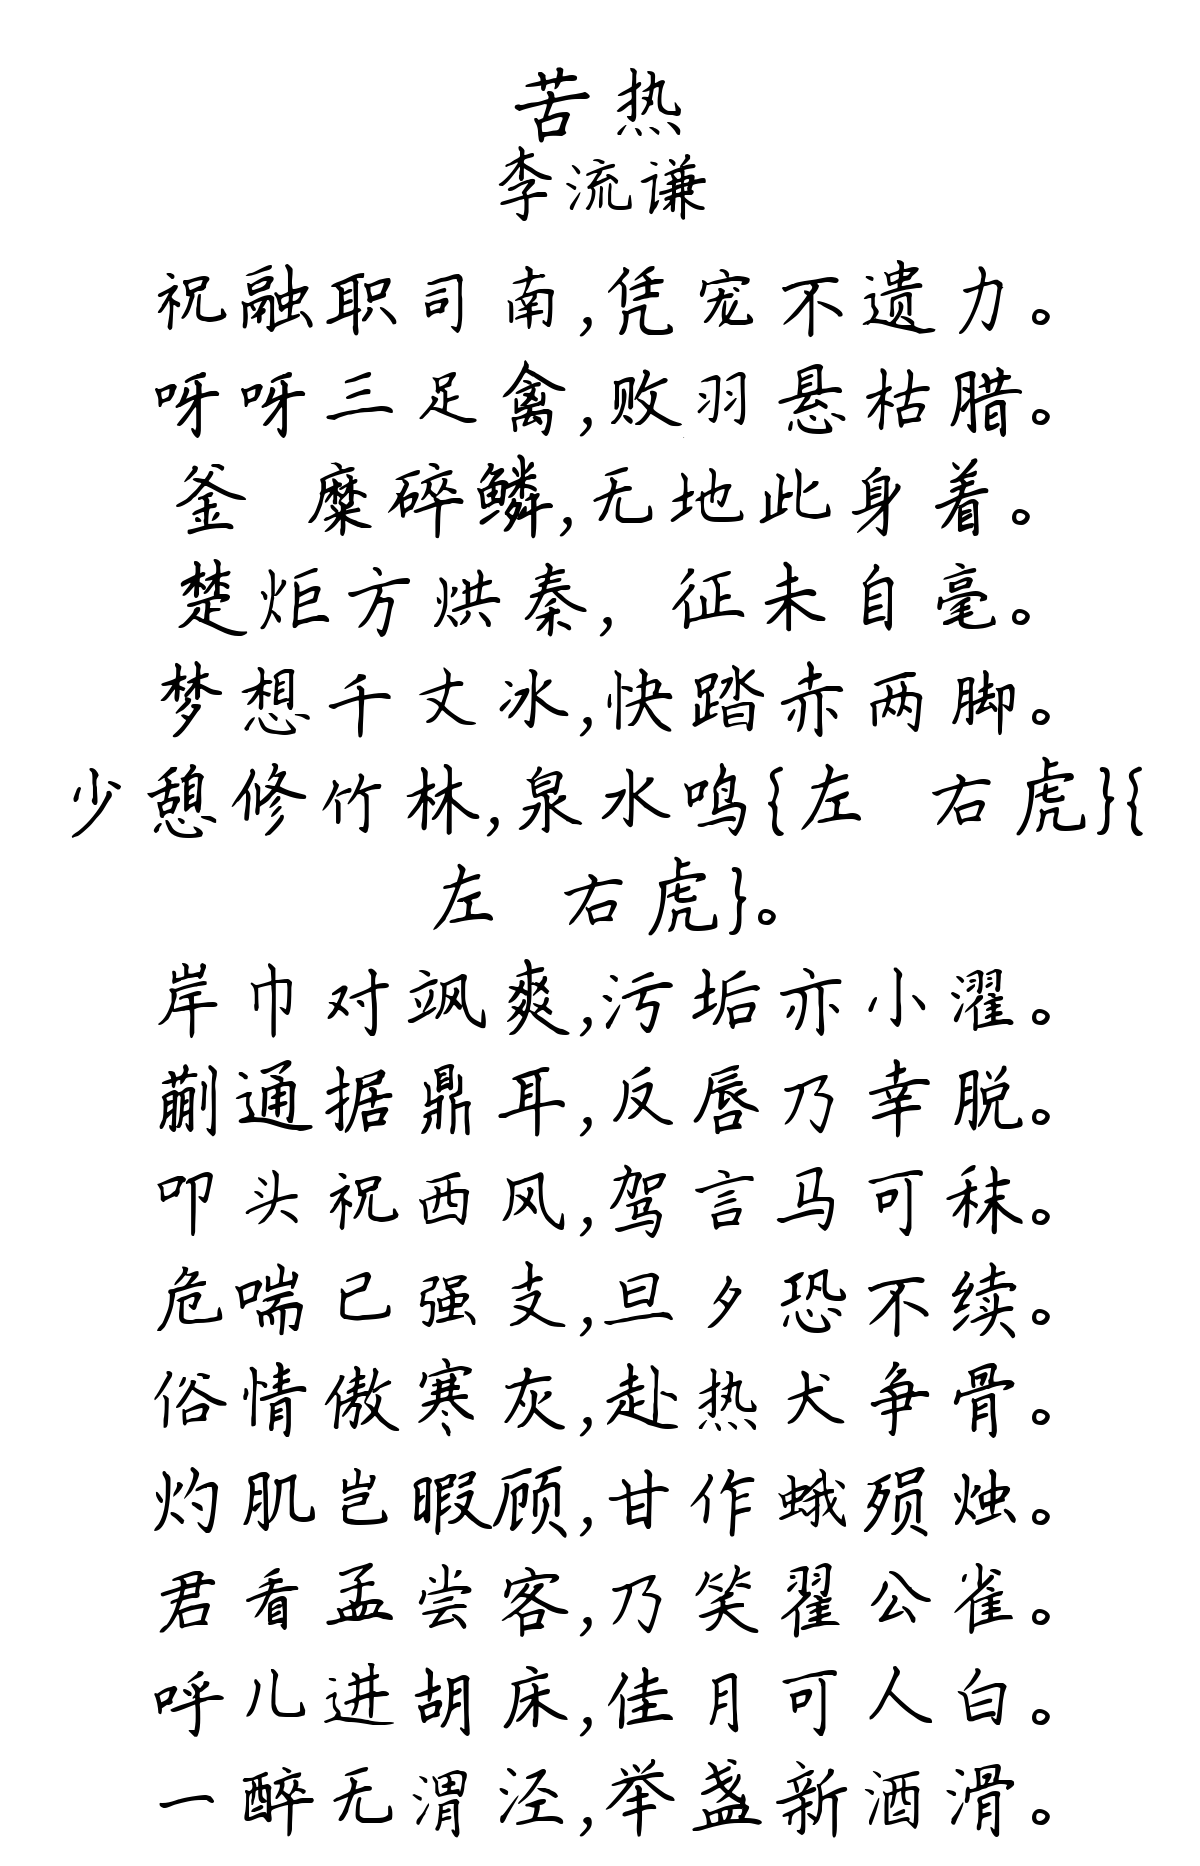 苦热
李流谦
祝融职司南,凭宠不遗力。
呀呀三足禽,败羽悬枯腊。
釜 糜碎鳞,无地此身着。
楚炬方烘秦, 征未自毫。
梦想千丈冰,快踏赤两脚。
少憩修竹林,泉水鸣{左 右虎}{
左 右虎}。
岸巾对飒爽,污垢亦小濯。
蒯通据鼎耳,反唇乃幸脱。
叩头祝西风,驾言马可秣。
危喘已强支,旦夕恐不续。
俗情傲寒灰,赴热犬争骨。
灼肌岂暇顾,甘作蛾殒烛。
君看孟尝客,乃笑翟公雀。
呼儿进胡床,佳月可人白。
一醉无渭泾,举盏新酒滑。